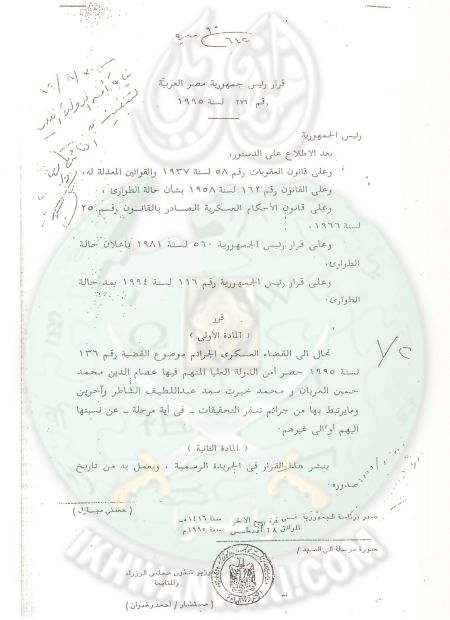 قرار رئيس جمهورية مصر العربية
رقم ٢٧٦ لسنة ١٩٩٥
رئيس الجمهورية
بعد الاطلاع على الدستور،
وعلى قانون العقوبات رقم ٥٨ لسنة ١٩٣٧ والقوانين المعدلة له،
وعلى القانون رقم ١٦٢ لسنة ١٩٥٨ بشأن حالة الطوارئ،
وعلى قانون الأحكام العسكرية الصادر بالقانون رقم ٢٥
لسنة ١٩٦٦،
وعلى قرار رئيس الجمهورية ٥٦٠ لسنة ١٩٨١ باعلان حالة
الطوارئ،
وعلى قرار رئيس الجمهورية رقم ١١٦ لسنة ١٩٩٤ بمد حالة
الطوارئ،
قرر
( المادة الأولى )
تحال الى القضاء العسكرى الجرائم موضوع القضية رقم ١٣٦
لسنة ١٩٩٥ حصر أمن الدولة العليا المتهم فيها عصام الدين محمد
حسين العريان و محمد خيرت سعد عبداللطيف الشاطر وآخرين
ومايرتبط بها من جرائم تسفر التحقيقات - فى أية مرحلة - عن نسبتها
اليهم أو الى غيرهم.
( المادة الثانية )
ينشر هذا القرار فى الجريدة الرسمية ، ويعمل به من تاريخ
صدوره.
( حسنى مبارك )
صدر برئاسة الجمهورية فى غرة ربيع الآخر سنة ١٤١٦ هـ
الموافق ٢٨ أغسطس سنة ١٩٩٥ م
صورة مرسلة الى السيد /
وزير شئون مجلس الوزراء
والمتابعة
( مستشار / أحمد رضوان )
IKHWANWIKI.COM